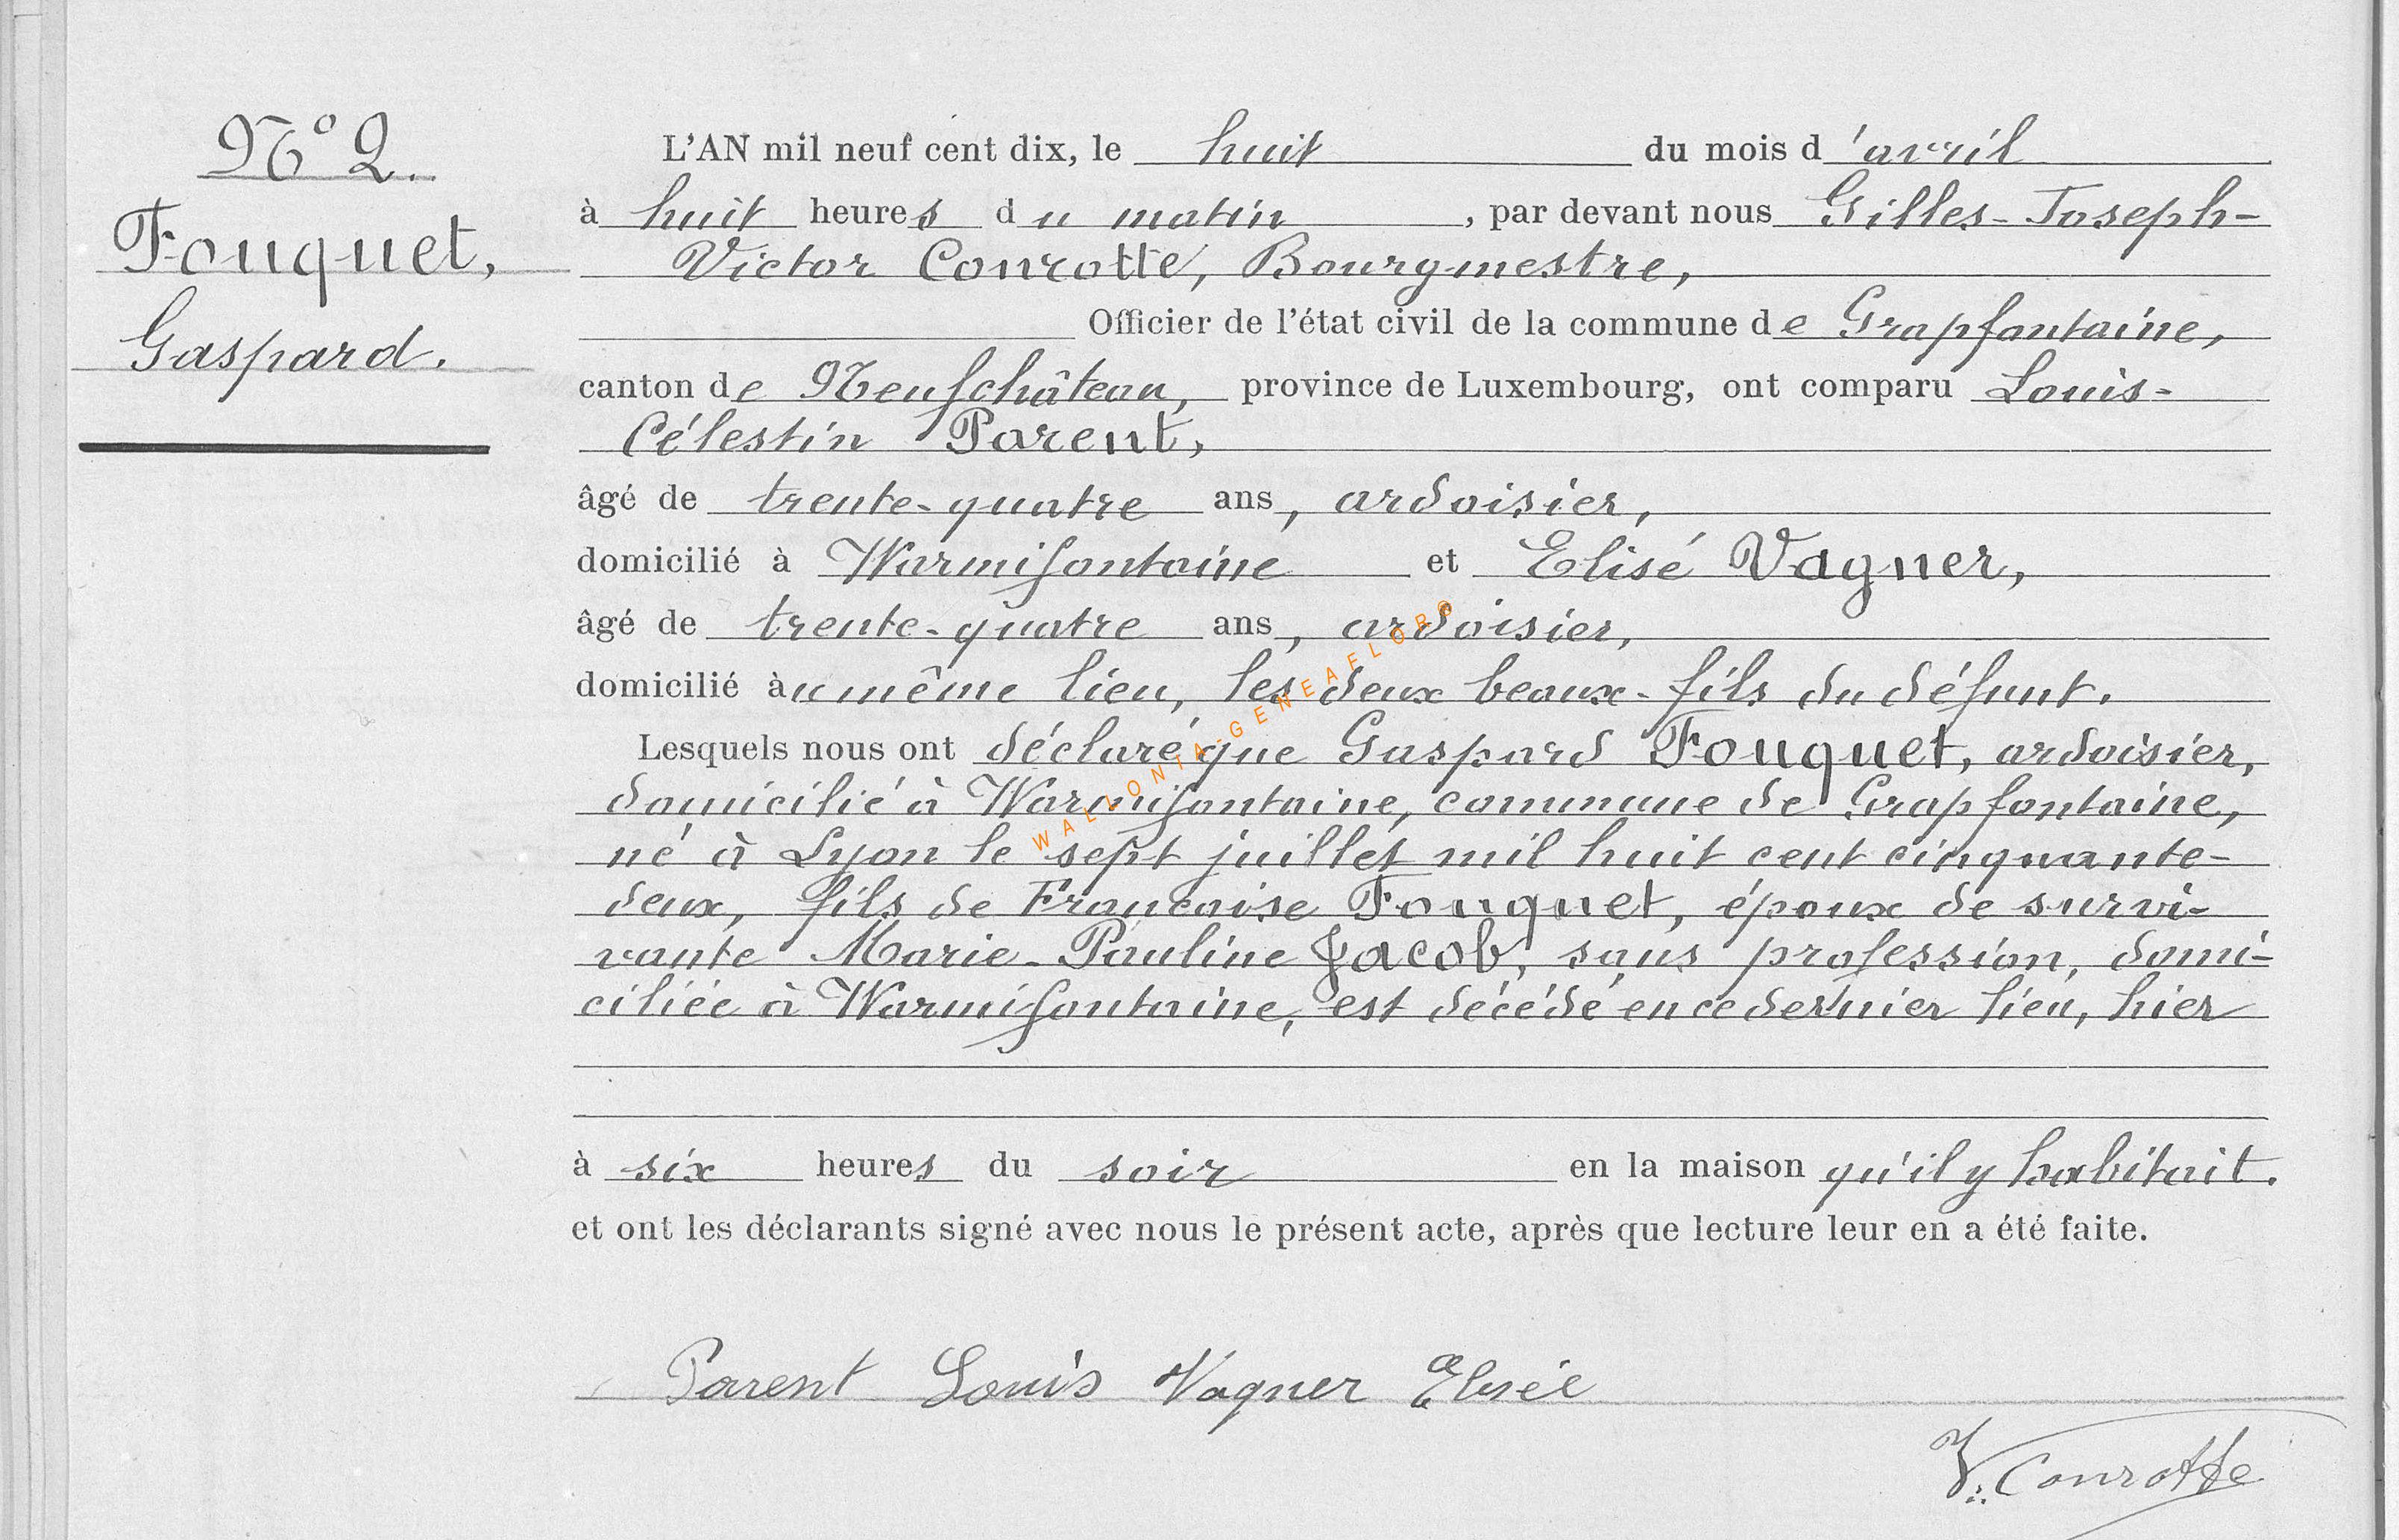 N° 2.
Fouquet,
Gaspard.
L'AN mil neuf cent dix, le huit du mois d'avril
à huit heures du matin, par devant nous Gilles-Joseph-
Victor Conrotte, Bourgmestre,
Officier de l'état civil de la commune de Grapfontaine,
canton de Neufchâteau, province de Luxembourg, ont comparu Louis-
Célestin Parent,
âgé de trente-quatre ans, ardoisier,
domicilié à Warmifontaine et Elisé Vagner,
âgé de trente-quatre ans, ardoisier,
domicilié au même lieu, les deux beaux-fils du défunt.
Lesquels nous ont déclaré que Gaspard Fouquet, ardoisier,
domicilié à Warmifontaine, commune de Grapfontaine,
né à Lyon le sept juillet mil huit cent cinquante-
deux, fils de Francoise Fouquet, époux de survi-
vante Marie-Pauline Jacob, sans profession, domi-
ciliée à Warmifontaine, est décédé en ce dernier lieu, hier
à six heures du soir en la maison qu'il y habitait.
et ont les déclarants signé avec nous le présent acte, après que lecture leur en a été faite.
Parent Louis Vagner Elisée
V. Conrotte
WALLONIA-GENEAFLORG